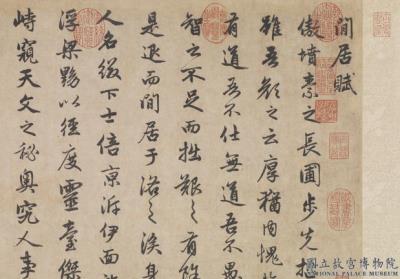 間居賦
傲墳素之長圃步先
雖吾顏之云厚猶內愧
有道吾不仕無道吾不愚
智之不足而拙艱之有餘
是退而間居于洛之涘身
人名綴下士倍京泝伊面
浮梁黝以徑度靈臺傑
峙窺天文之秘奧究人事
國立故宮博物院
NATIONAL PALACE MUSEUM